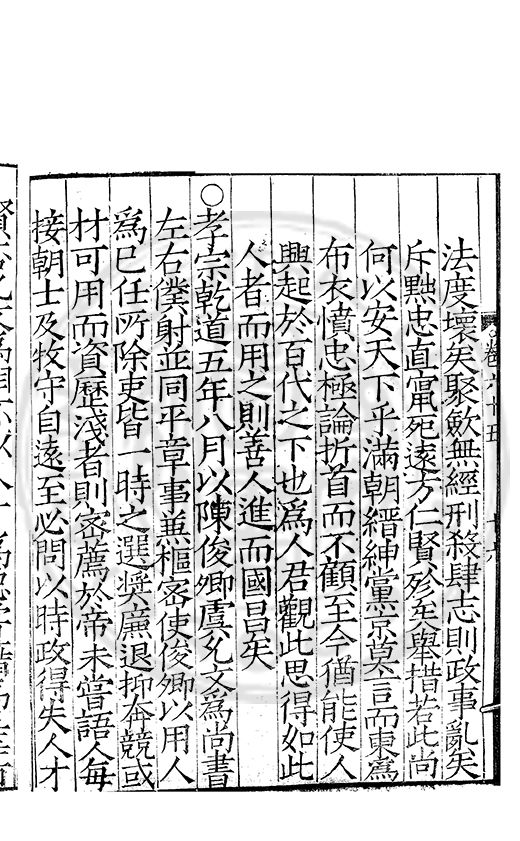 卷六十五
十六
法度壞矣聚斂無經刑殺肆志則政事亂矣
斥黜忠直竄死遠方仁賢殄矣舉措若此尚
何以安天下乎滿朝縉紳黨京莫言而東爲
布衣憤忠極論折首而不顧至今猶能使人
興起於百代之下也爲人君觀此思得如此
人者而用之則善人進而國昌矣
○孝宗乾道五年八月以陳俊卿虞允文爲尚書
左右僕射並同平章事兼樞密使俊卿以用人
爲已任所除吏皆一時之選奬廉退抑奔競或
材可用而資歷淺者則密薦於帝未嘗語人每
接朝士及牧守自遠至必問以時政得失人才